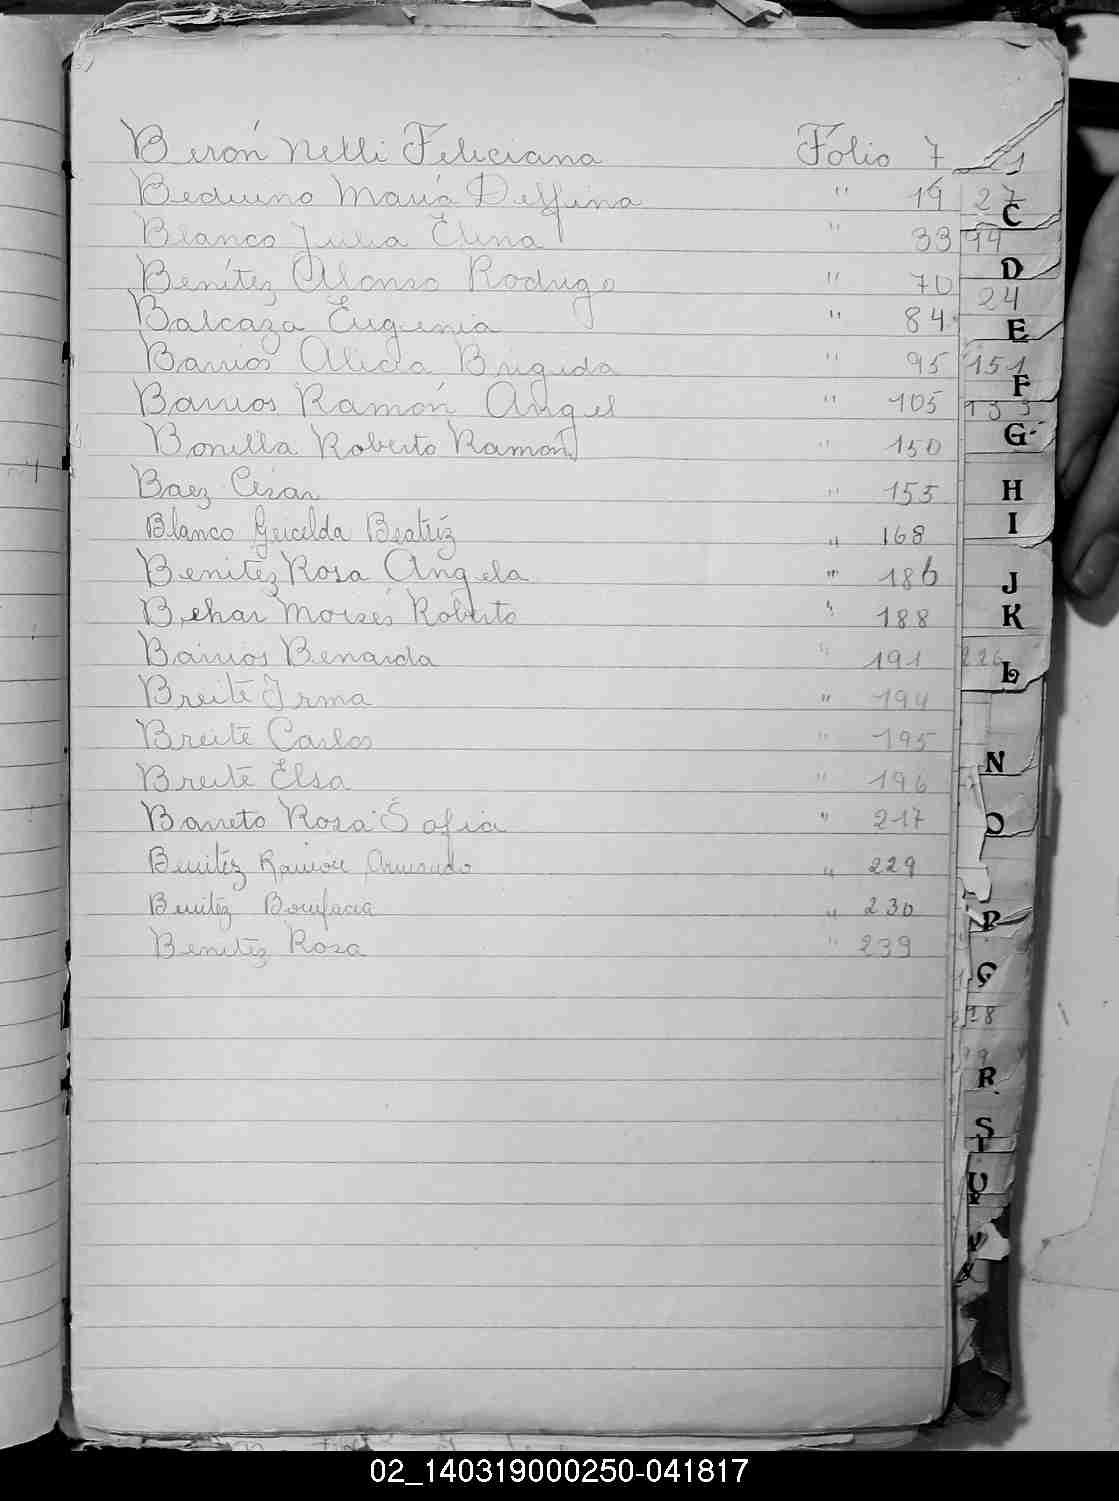 Berón Nelli Feliciana Folio 7
Beduino María Delfina " 19
Blanco Julia Elina " 33
Benítez Alonso Rodrigo " 70
Balcaza Eugenia " 84
Barrios Alicia Brigida " 95
Barrios Ramón Angel " 105
Bonilla Roberto Ramón " 150
Baez Cesar " 155
Blanco Gricelda Beatríz " 168
Benitez Rosa Angela " 186
Behar Moisés Roberto " 188
Barrios Benarda " 191
Breite Irma " 194
Breite Carlos " 195
Breite Elsa " 196
Barreto Rosa Sofia " 217
Benitez Ramón Armando " 229
Benitez Bonifacia " 230
Benitez Rosa " 239
1
27
C
94
D
24
E
151
F
133
G
H
I
J
K
226
L
N
O
P
Q
R
S
T
U
02_140319000250-041817